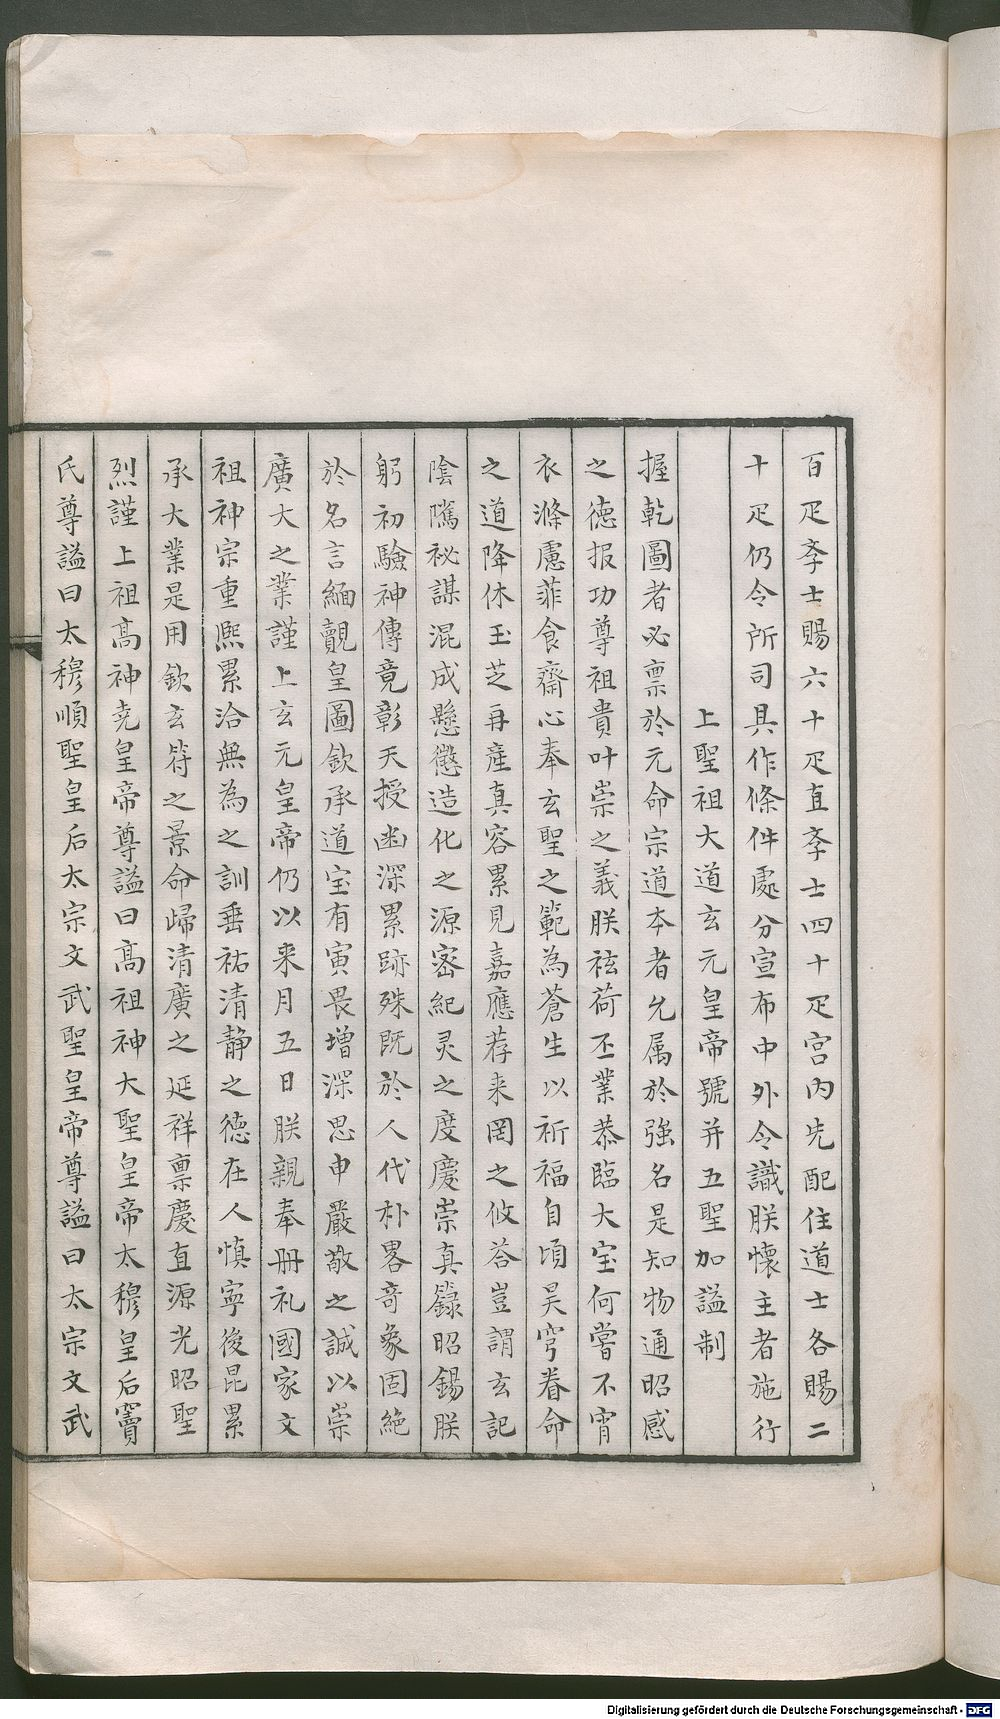 百疋孛士賜六十疋直孛士四十疋宫内先配住道士各賜二
十疋仍令所司具作條件處分宣布中外令識朕懷主者施行
上聖祖大道玄元皇帝號并五聖加謚制
握乾圖者必禀於元命宗道本者允属於強名是知物通昭感
之德报功尊祖貴叶崇之義朕祗荷丕業恭臨大宝何嘗不宵
衣滌慮菲食齋心奉玄聖之範為蒼生以祈福自頃昊穹眷命
之道降休玉芝再産真容累見嘉應荐来罔之攸荅豈謂玄記
陰隲祕謀混成懸懲造化之源密紀灵之度慶崇真籙昭錫朕
躬初驗神傳竟彰天授幽深累跡殊既於人代朴畧竒象固絶
於名言緬觀皇圖欽承道宝有寅畏增深思申嚴敬之誠以崇
廣大之業謹上玄元皇帝仍以来月五日朕親奉册礼國家文
祖神宗重熈累洽無為之訓垂祐清静之德在人慎寜後昆累
承大業是用欽玄符之景命歸清廣之延祥禀慶直源光昭聖
烈謹上祖髙神尭皇帝尊謚曰髙祖神大聖皇帝太穆皇后竇
氏尊謚曰太穆順聖皇后太宗文武聖皇帝尊謚曰太宗文武
Digitalisierung gefördert durch die Deutsche Forschungsgemeinschaft - DFG